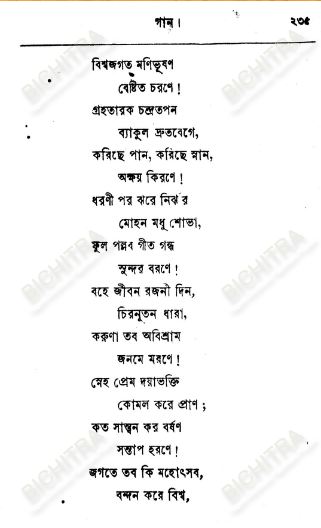 গান। ২৩৫
বিশ্বজগত মণিভূষণ
বেষ্টিত চরণে!
গ্রহতারক চন্দ্রতপন
ব্যাকুল দ্রুতবেগে,
করিছে পান, করিছে স্নান,
অক্ষয় কিরণে!
ধরণী পর ঝরে নির্ঝর
মোহন মধু শোভা,
ফুল পল্লব গীত গন্ধ
সুন্দর বরণে!
বহে জীবন রজনী দিন,
চিরনূতন ধারা,
করুণা তব অবিশ্রাম
জনমে মরণে!
স্নেহ প্রেম দয়াভক্তি
কোমল করে প্রাণ;
কত সান্ত্বন কর বর্ষণ
সন্তাপ হরণে!
জগতে তব কি মহোৎসব,
বন্দন করে বিশ্ব,
BICHITRA
BICHITRA
BICHITRA
BICHITRA
BICHITRA
BICHITRA